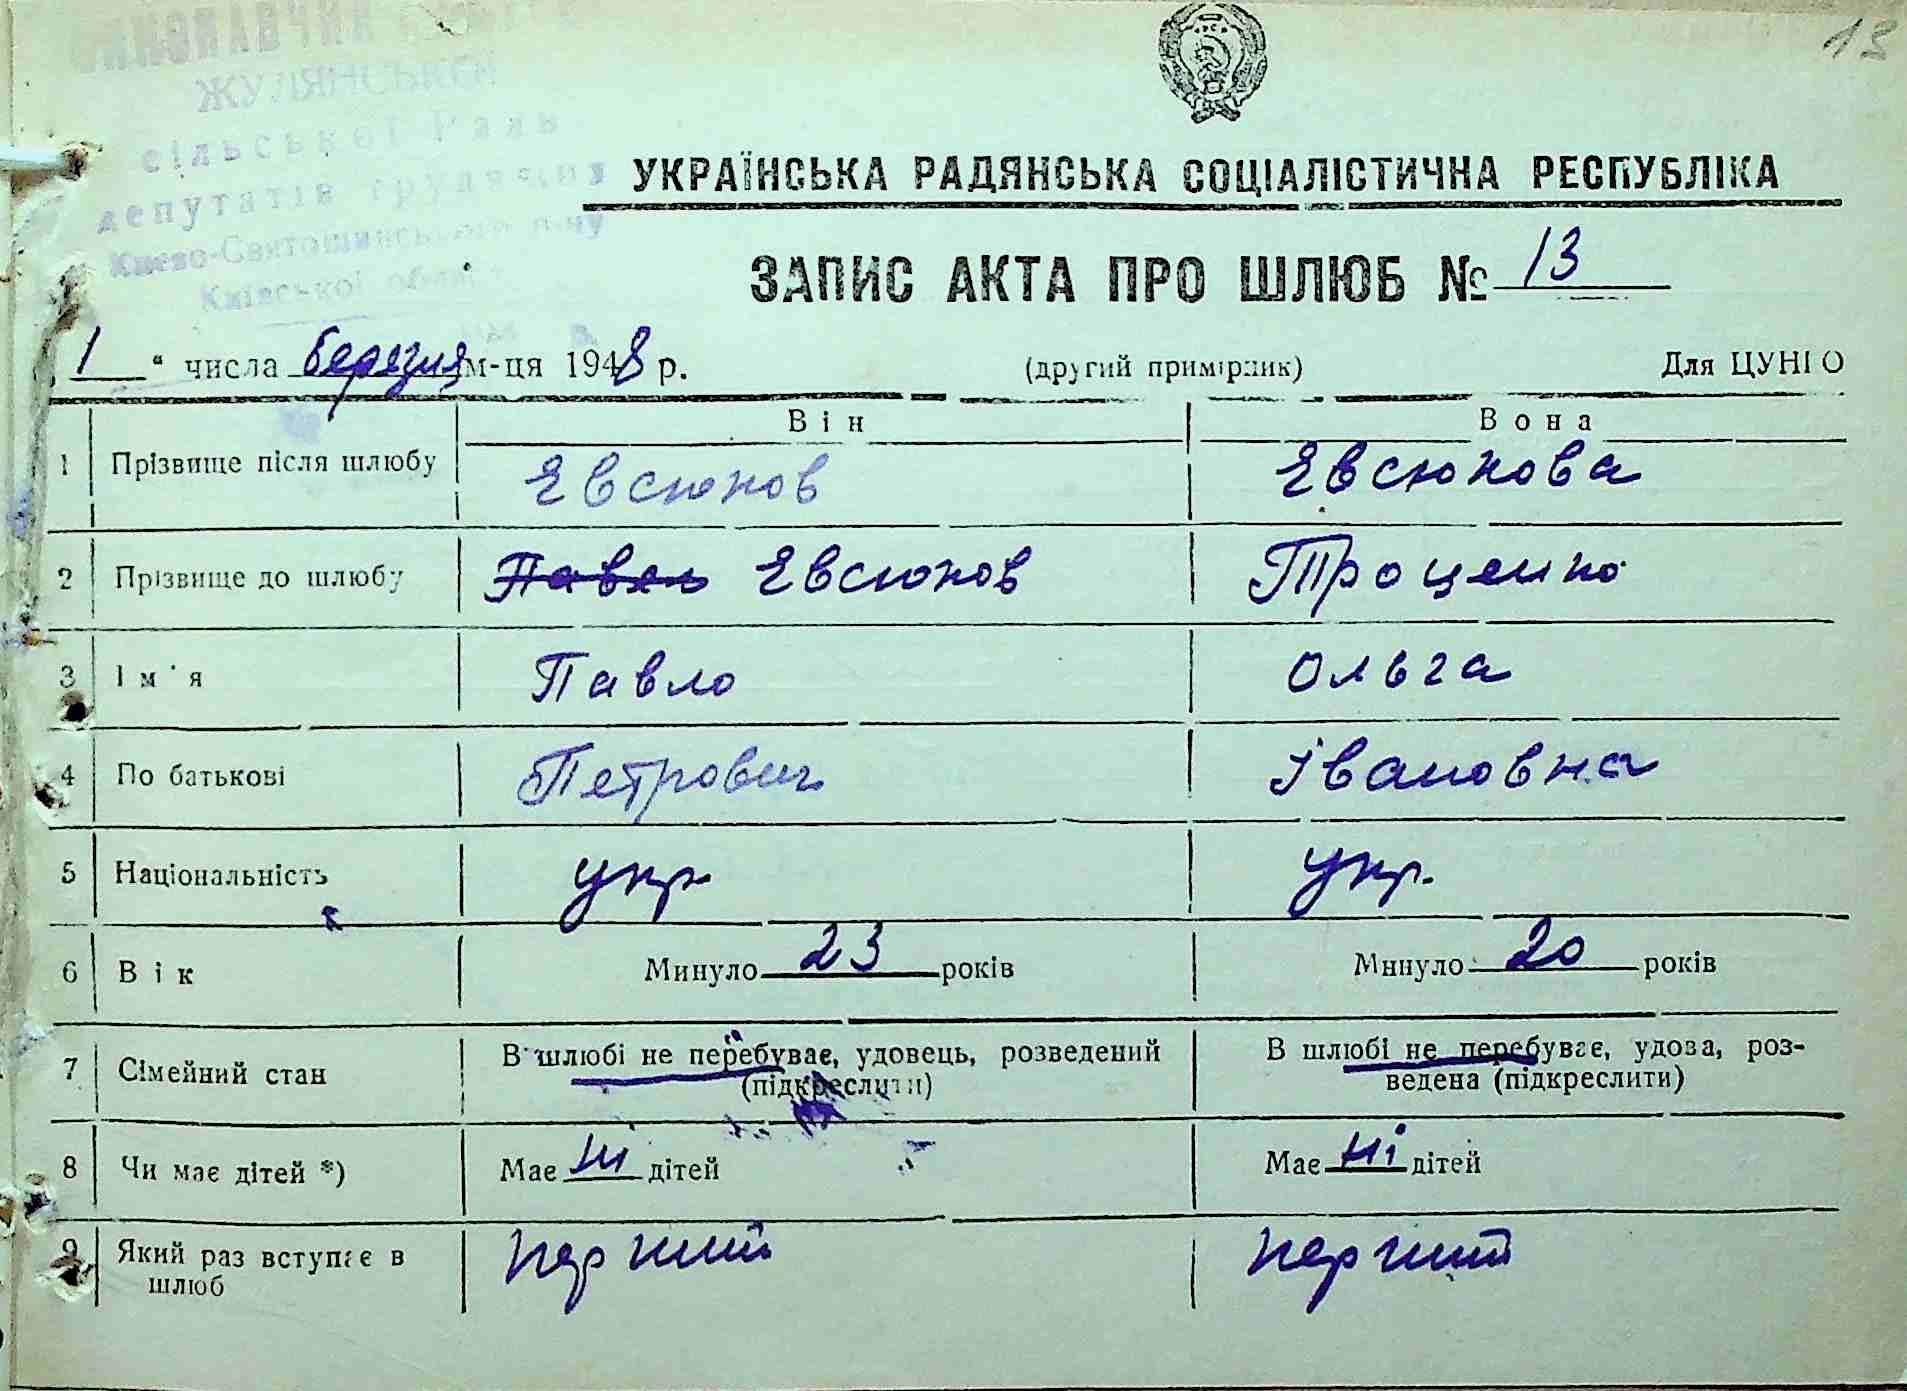 13
ЖУЛЯНСЬКОЇ
сільської Ради
депутатів трудящих
Києво-Святошинського р-ну
Київської області
УКРАЇНСЬКА РАДЯНСЬКА СОЦІАЛІСТИЧНА РЕСПУБЛІКА
ЗАПИС АКТА ПРО ШЛЮБ № 13
1 " числа березня м-ця 1948 р. (другий примірник) Для ЦУНГО
Він Вона
1 Прізвище після шлюбу Евсюков Евсюкова
2 Прізвище до шлюбу Павель Евсюков Троценко
3 Ім'я Павло Ольга
4 По батькові Петрович Івановна
5 Національність укр укр.
6 Вік Минуло 23 років Минуло 20 років
7 Сімейний стан В шлюбі не перебуває, удовець, розведений (підкреслити) В шлюбі не перебуває, удова, роз-
ведена (підкреслити)
8 Чи має дітей *) Має ні дітей Має ні дітей
9 Який раз вступає в шлюб перший перший